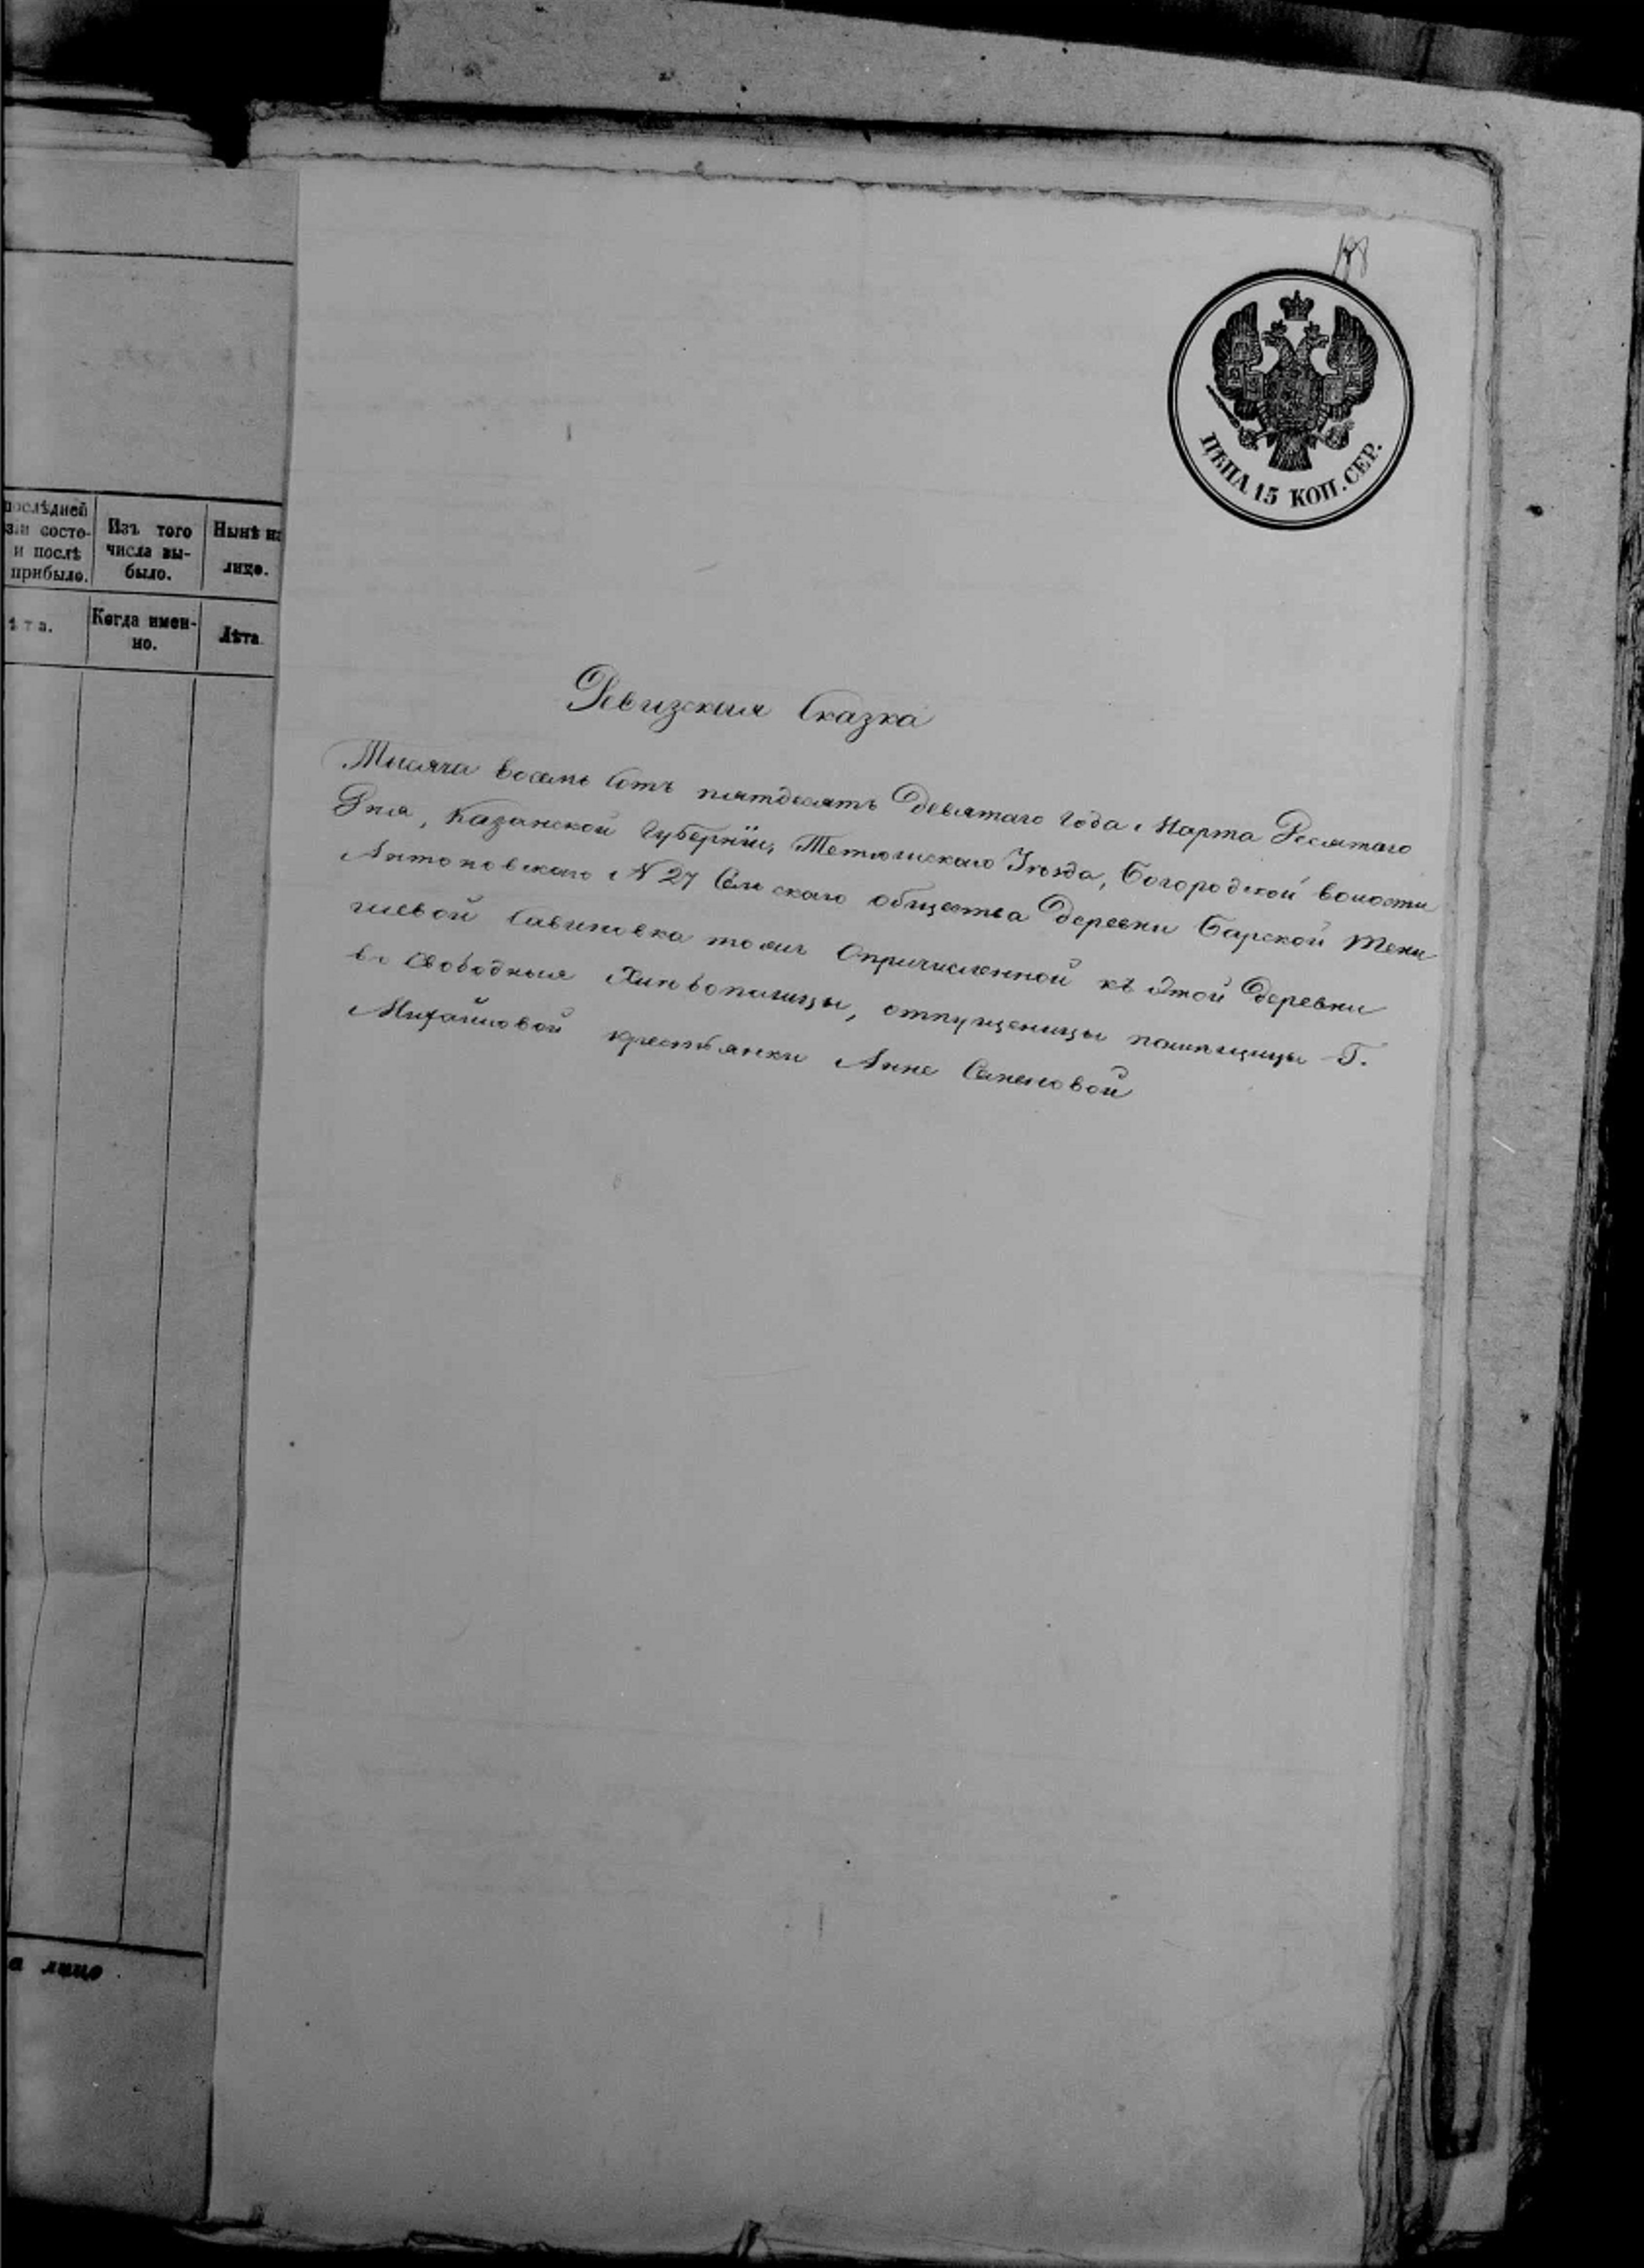 188
ЦѢНА 15 КОП. СЕР.
послѣдней
зіи состо-
и послѣ
прибыло.
Изъ того
числа вы-
было.
Нынѣ на
лицо.
ѣта.
Когда имен-
но.
Лѣта.
а лицо
Ревизская Сказка
Тысяча восемь сотъ пятдесятъ девятаго года Марта Десятаго
Дня, Казанской Губернїи, Тетюшскаго Уѣзда, Богородской волости
Антоновскаго № 27 Сельскаго общества деревни Барской Тени
шевой Савиновка тожъ Опричисленной къ этой деревни
во Свободныя Хлѣбопашцы, отпущеницы помѣщицы Г.
Михайловой крестьянки Анне Семеновой